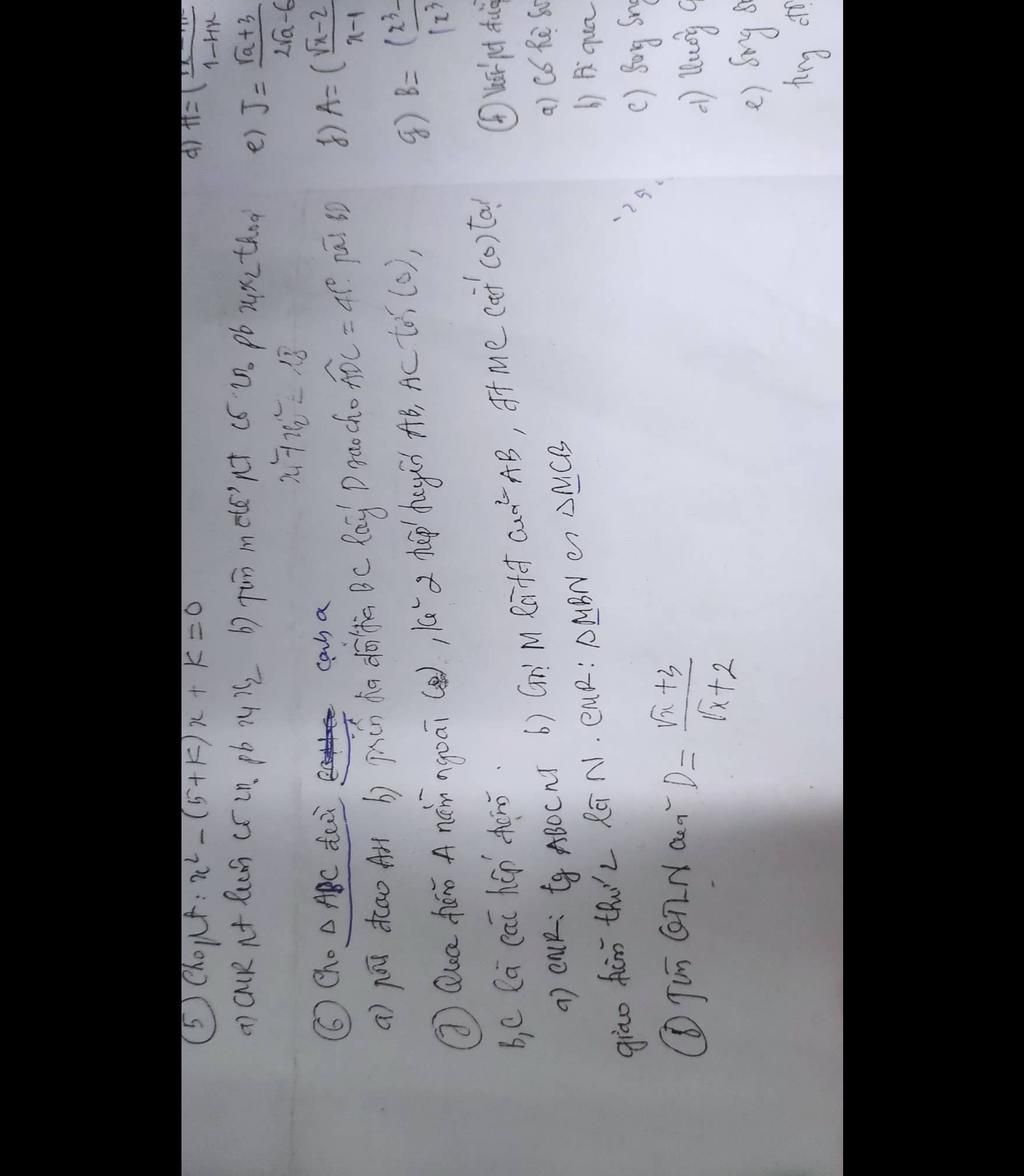 ⑤ Cho pt: x² – (5+K)x + K = 0
a) CMR pt luôn có n₀ pb x₁ x₂ b) Tìm m để pt có n₀ pb x₁ x₂ thoả
x₁² + x₂² = 18
⑥ Cho Δ ABC đều cạnh a
a) đcao AH b) trên tia đối tia BC lấy D sao cho ADC = 45°. BD
⑦ Qua điểm A nằm ngoài (O), kẻ 2 tiếp tuyến AB, AC tới (O),
B, C là các tiếp điểm.
a) CMR: tg ABOC nt b) Gọi M là tđ của AB, đt MC cắt (O) tại
giao điểm thứ 2 là N. CMR: ΔMBN ∽ ΔMCB
⑧ Tìm GTLN của D = √x + 3 / √x + 2
d) H = (
1 –
e) J = √a + 3
2√a – 6
f) A = (√x – 2
x – 1
g) B = (x³ –
(x³
④ Viết pt đườ
a) Có hệ số
b) Đi qua
c) Song song
d) Vuông g
e) Song so